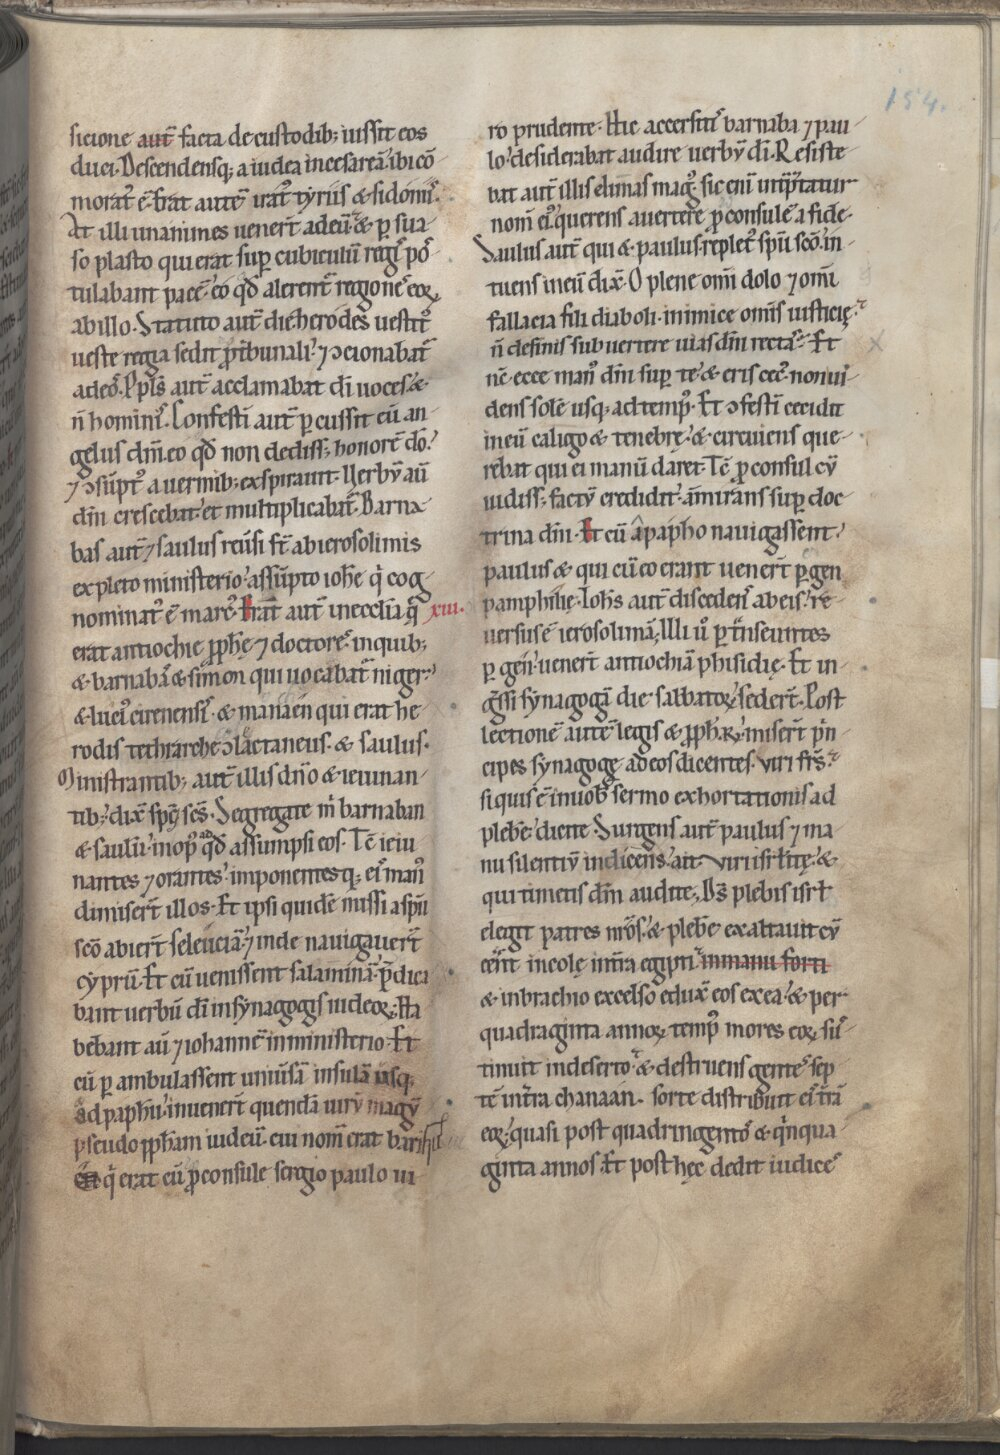 154.
sicione aut̄ facta de custodib; iussit eos
duci. Descendensq; a iudea in cesareā ibi cō
morat᷒ ē. Erat autē irat᷒ tyriis & sidoniis.
At illi unanimes uener̄t ad eū. & ꝑ sua
so plasto qui erat suꝑ cubiculū regis pos
tulabant pacē. eo qd̄ alerent᷒ regiones eoꝝ
ab illo. Statuto aut̄ die herodes uestit᷒
ueste regia sedit ꝓ tribunali. ⁊ ↄcionabat᷒
ad eos. Ppl̄s aut̄ acclamabat di uoces &
n̄ hominis. Confestī aut̄ ꝑcussit eū an
gelus dn̄i. eo qd̄ non dediss; honorē do.
⁊ ↄsūpt᷒ a uermib; exspirauit. Uerbū aū
dn̄i crescebat et multiplicabat᷒. Barna
bas aut̄ ⁊ saulus reūsi st̄ ab ierosolimis
expleto ministerio. assūpto ioh̄e q̇ cog
nominat᷒ ē marc᷒. Erāt aut̄ in ecclīa q̄ xiii.
erat antiochie ꝓphę ⁊ doctores. in quib;
& barnabā & simon qui uocabat᷒ niger.
& luci᷒ cirenensis. & manaen qui erat he
rodis tethrarche ↄlactaneus. & saulus.
Ministrantib; aut̄ illis dn̄o & ieiunan
tib; dix̄ sp̄c sc̄s. Segregate m̄ barnaban
& saulū. in op᷒ ad qd̄ assumpsi eos. Tc̄ ieiu
nantes ⁊ orantes. imponentesq; eis man᷒
dimiser̄t illos. Et ipsi quidē missi a spū
scō abier̄t seleuciā. ⁊ inde nauigauer̄t
cyprū. Et cū uenissent salaminā. p̄dica
bant uerbū di in synagogis iudeoꝝ. Ha
bebant aū ⁊ iohannē in ministerio. Et
cū ꝑambulassent uniūsā insulā usq;
ad paphū. inuener̄t quendā uirū magū
pseudo ꝓpham iudeū. cui nom̄ erat barihsu
q̇ erat cū ꝓconsule sergio paulo ui
ro prudente. Hic accersitis barnaba ⁊ pau
lo desiderabat audire uerbū di. Resiste
bat aut̄ illis elimas mag᷒. sic enī int̄p̄tatur
nom̄ ei᷒ querens auertere ꝓconsulē a fide.
Saulus aut̄ qui & paulus replet᷒ spū scō. in
tuens in eū dix̄. O plene om̄i dolo ⁊ om̄i
fallacia fili diaboli. inimice om̄is iusticię.
n̄ definis subuertere uias dn̄i rectas. Et
nc̄ ecce man᷒ dn̄i suꝑ te & eris cec᷒. non ui
dens solē usq; ad temp᷒. Et ↄfestī cecidit
in eū caligo & tenebrę. & circuiens que
rebat qui ei manū daret. Tc̄ ꝓconsul cū
uidiss; factū credidit. am̄irans suꝑ doc
trina dn̄i. Et cū a papho nauigassent
paulus & qui cū eo erant uener̄t ꝑgen
pamphilię. Ioh̄s aut̄ discedens ab eis. re
uersus ē ierosolimā. Illi ū ꝑt̄nseuntes
ꝑgen. uener̄t antiochiā phisidię. Et in
g̈ssi synagogā die sabbatoꝝ sederūt. Post
lectionē autē legis & ꝓph̄aꝝ. miser̄t p̄n
cipes synagogę ad eos dicentes. Viri frs̄.
si quis ē in uobis sermo exhortationis ad
plebē dicite. Surgens aut̄ paulus ⁊ ma
nu silentiū indicens. ait. Viri isrl̄itę. &
qui timetis dn̄m audite. Ds̄ plebis isrl̄
elegit patres nr̄os. & plebē exaltauit cū
eēnt incolę in t̄ra egipti. in manu forti
& in brachio excelso edux̄ eos ex ea. & per
quadraginta annoꝝ temp᷒ mores eoꝝ sus
tinuit in deserto. & destruens gentes sep
tē in t̄ra chanaan. sorte distribuit eis t̄rā
eoꝝ. quasi post quadringentos & q̇nqua
ginta annos. Et post hęc dedit iudices